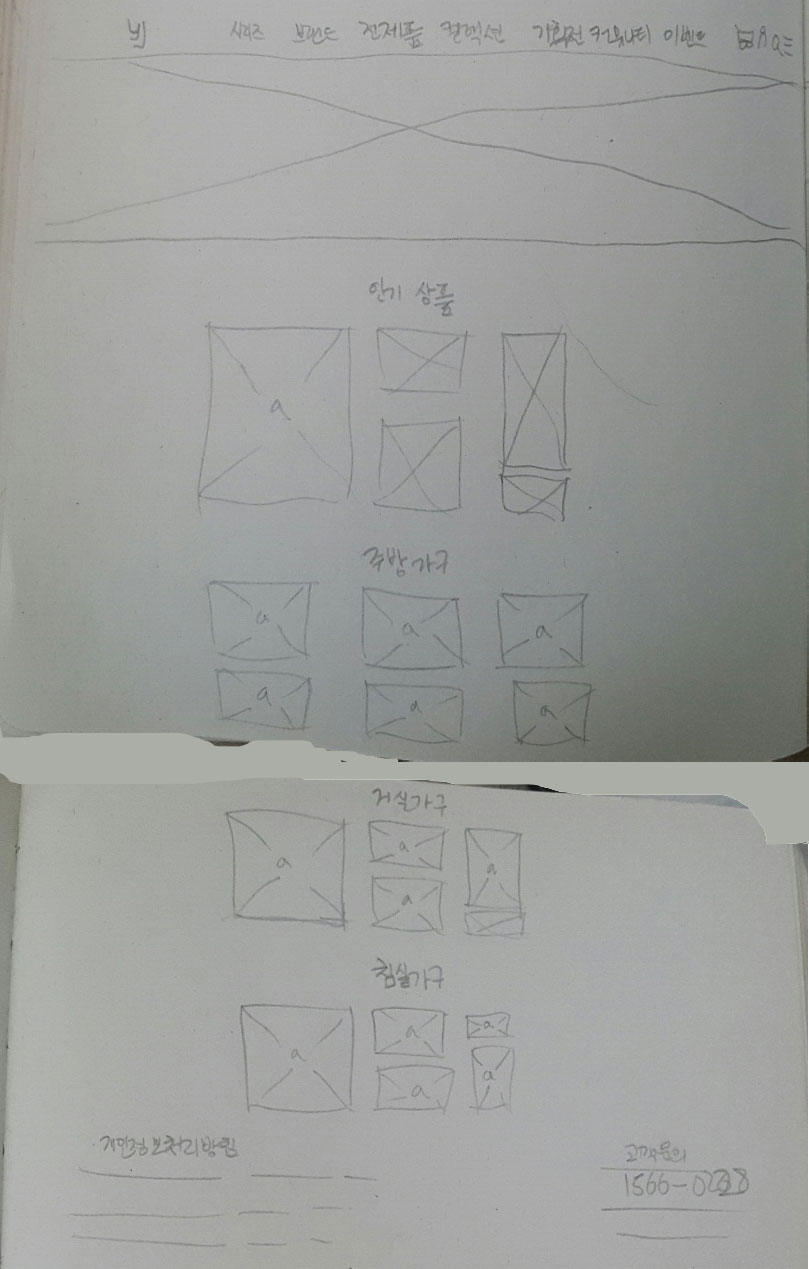 시리즈 브랜드 전제품 컬렉션 기획전 커뮤니티 이벤트
인기 상품
a
주방가구
a a a
a a a
거실가구
a a a
a
침실가구
a a a
a a
개인정보처리방침 고객문의
1566-